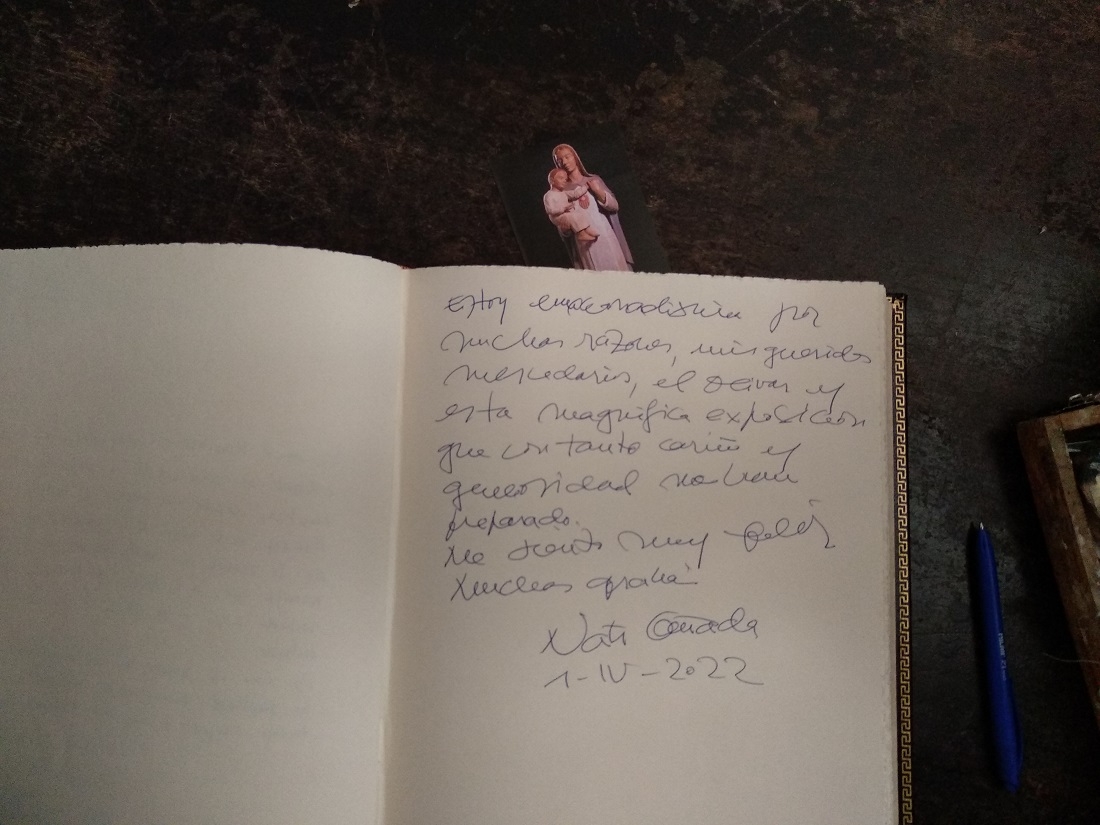 Estoy emocionadísima por
muchas razones, mis queridos
mercedarios, el Olivar y
esta magnífica exposición
que con tanto cariño y
generosidad nos han
preparado.
Me siento muy feliz
Muchas gracias
Nati Cañada
1-IV-2022